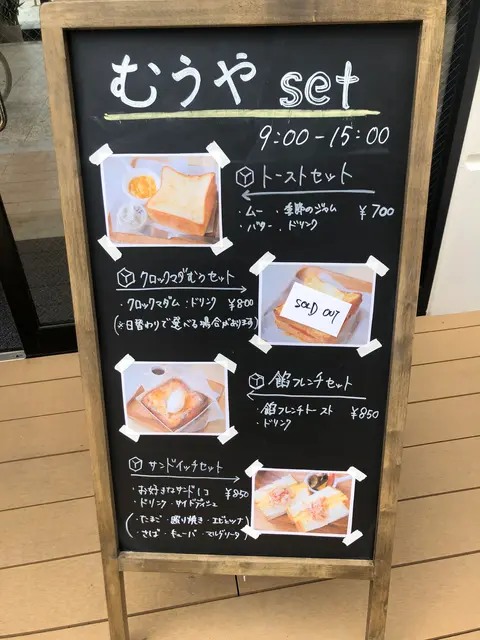 むうや set
9:00-15:00
トーストセット
・ムー ・季節のジャム ¥700
・バター ・ドリンク
クロックマダむぅセット
・クロックマダム ・ドリンク ¥800
(※日替わりで選べる場合があります)
SOLD OUT
餡フレンチセット
・餡フレンチトースト ¥850
・ドリンク
サンドイッチセット
・お好きなサンド1コ ¥850
・ドリンク ・サイドディッシュ
(・たまご ・照り焼き ・エビとツナ
・さば ・キューバ ・マルゲリータ)